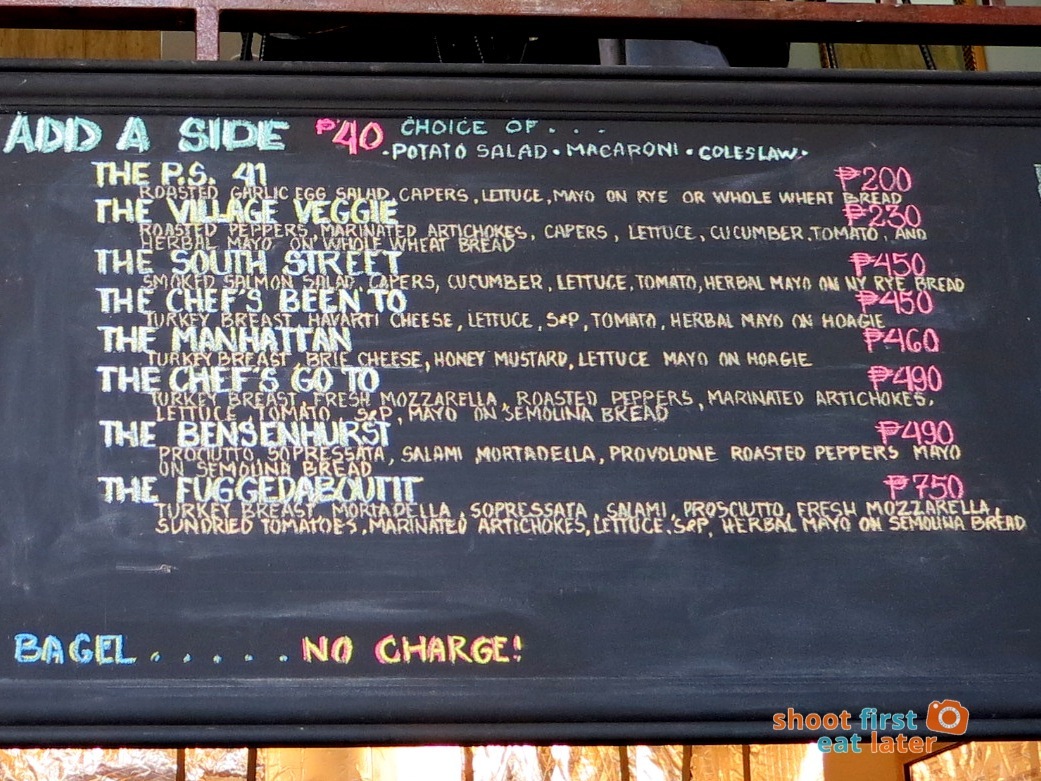 ADD A SIDE ₱40 CHOICE OF . . .
• POTATO SALAD • MACARONI • COLESLAW •
THE P.S. 41 ₱200
ROASTED GARLIC EGG SALAD, CAPERS, LETTUCE, MAYO ON RYE OR WHOLE WHEAT BREAD
THE VILLAGE VEGGIE ₱230
ROASTED PEPPERS, MARINATED ARTICHOKES, CAPERS, LETTUCE, CUCUMBER, TOMATO, AND
HERBAL MAYO ON WHOLE WHEAT BREAD
THE SOUTH STREET ₱450
SMOKED SALMON SALAD, CAPERS, CUCUMBER, LETTUCE, TOMATO, HERBAL MAYO ON NY RYE BREAD
THE CHEF'S BEEN TO ₱450
TURKEY BREAST, HAVARTI CHEESE, LETTUCE, S&P, TOMATO, HERBAL MAYO ON HOAGIE
THE MANHATTAN ₱460
TURKEY BREAST, BRIE CHEESE, HONEY MUSTARD, LETTUCE MAYO ON HOAGIE
THE CHEF'S GO TO ₱490
TURKEY BREAST, FRESH MOZZARELLA, ROASTED PEPPERS, MARINATED ARTICHOKES,
LETTUCE, TOMATO, S&P, MAYO ON SEMOLINA BREAD
THE BENSENHURST ₱490
PROCIUTTO, SOPRESSATA, SALAMI, MORTADELLA, PROVOLONE ROASTED PEPPERS MAYO
ON SEMOLINA BREAD
THE FUGGEDABOUTIT ₱750
TURKEY BREAST, MORTADELLA, SOPRESSATA, SALAMI, PROSCIUTTO, FRESH MOZZARELLA,
SUNDRIED TOMATOES, MARINATED ARTICHOKES, LETTUCE, S&P, HERBAL MAYO ON SEMOLINA BREAD
BAGEL . . . . . . NO CHARGE!
shoot first
eat later